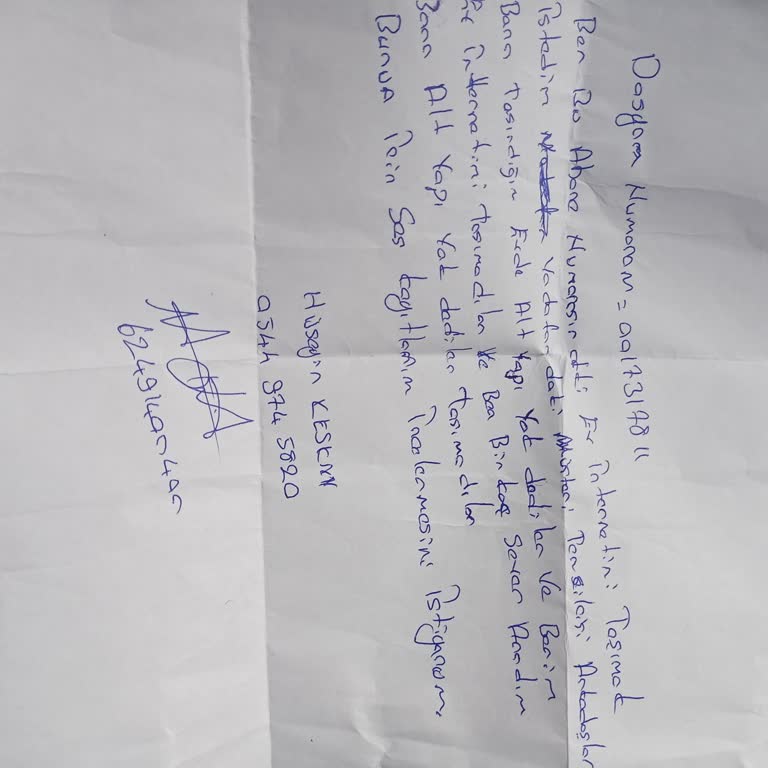 Dosyam Numaram = 0017317811
Ben Bu Abone Numarasındaki Ev İnternetini Taşımak
İstedim Vodafondaki Müşteri Temsilcisi Arkadaşlar
Bana Taşındığım Evde Alt Yapı Yok dediler Ve Benim
Ev İnternetini Taşımadılar Ve Ben Birkaç Sefer Aradım
Bana Alt Yapı Yok dediler Taşımadılar
Bunun İçin Ses kayıtlarının İncelenmesini İstiyorum.
Hüseyin KESKİN
0544 974 5820